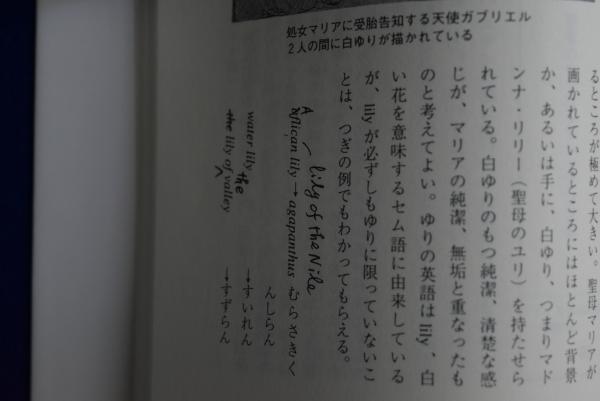 処女マリアに受胎告知する天使ガブリエル
2人の間に白ゆりが描かれている
るところが極めて大きい。聖母マリアが
画かれているところにはほとんど背景
か、あるいは手に、白ゆり、つまりマド
ンナ・リリー（聖母のユリ）を持たせら
れている。白ゆりのもつ純潔、清楚な感
じが、マリアの純潔、無垢と重なったも
のと考えてよい。ゆりの英語は lily、白
い花を意味するセム語に由来している
が、lily が必ずしもゆりに限っていないこ
とは、つぎの例でもわかってもらえる。
lily of the Nile
African lily → agapanthus むらさきく
んしらん
water lily →すいれん
the lily of the valley →すずらん